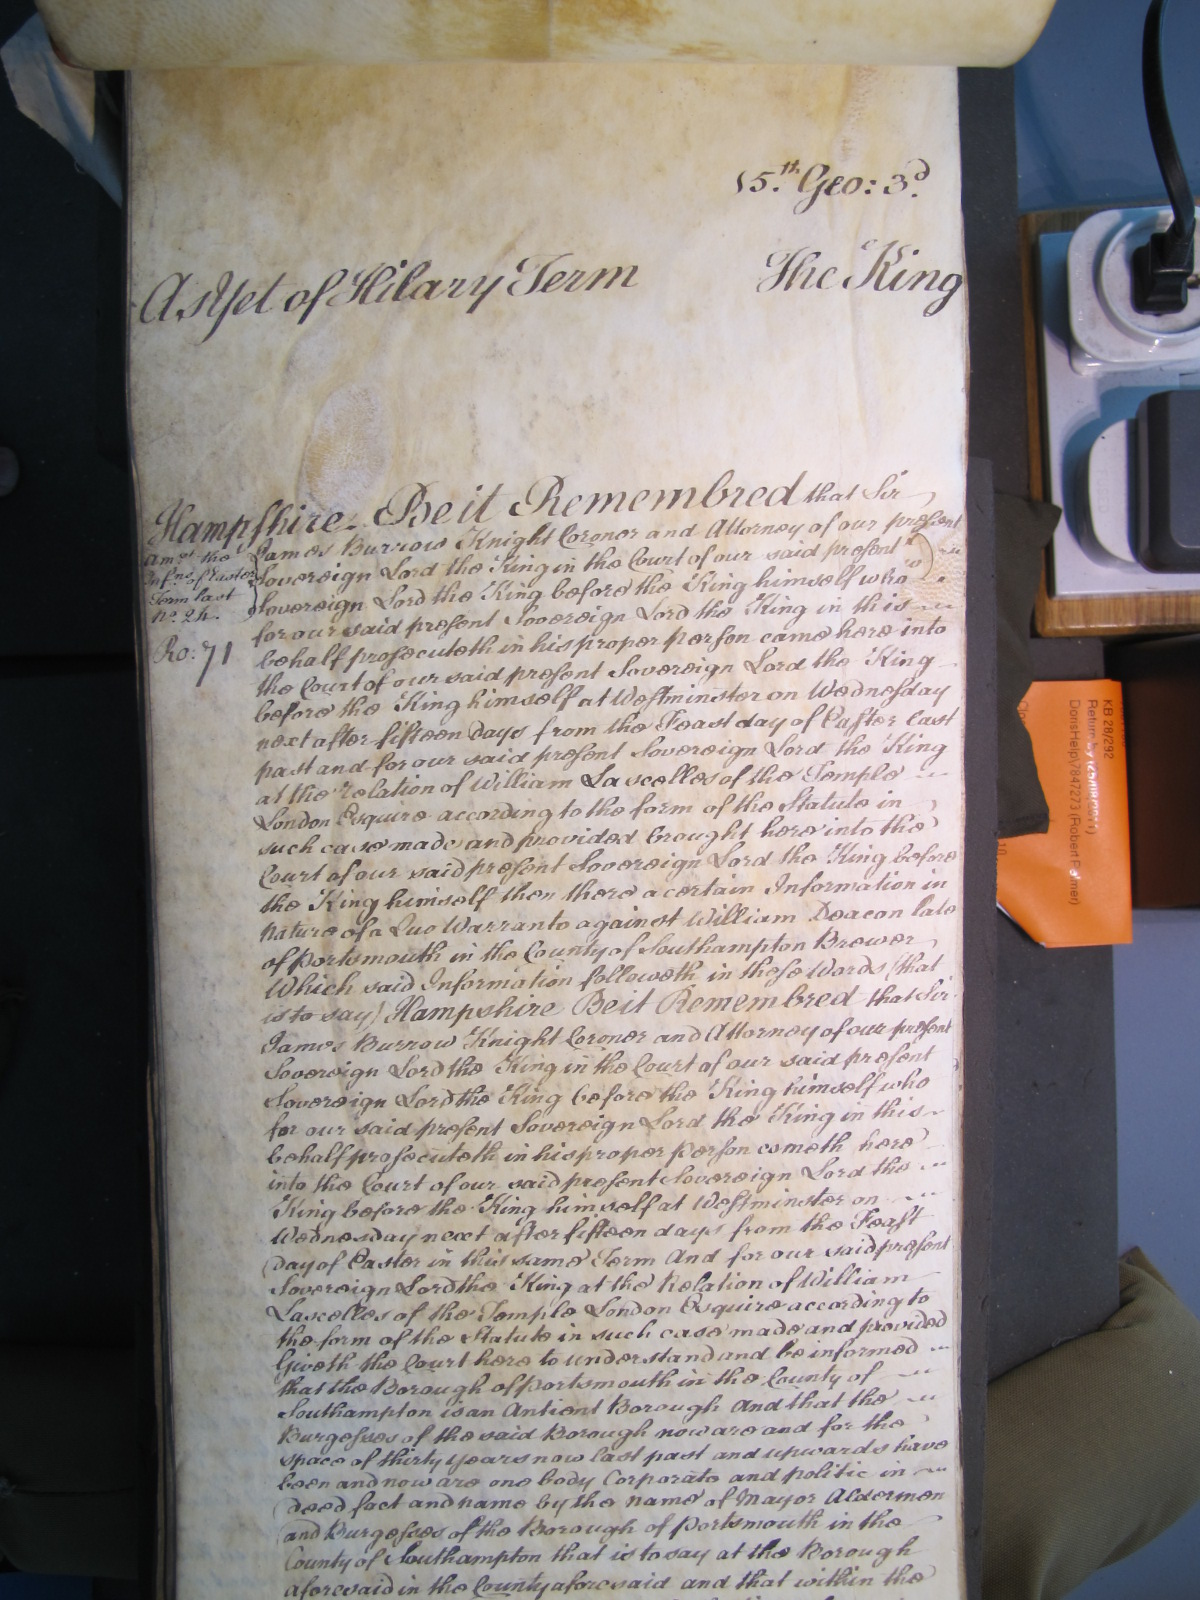 15.th Geo: 3.d
As Yet of Hilary Term The King
Hampshire. Be it Remembred that Sir
James Burrow Knight Coroner and Attorney of our present
Sovereign Lord the King in the Court of our said present
Sovereign Lord the King before the King himself who
for our said present Sovereign Lord the King in this
behalf prosecuteth in his proper person came here into
the Court of our said present Sovereign Lord the King
before the King himself at Westminster on Wednesday
next after fifteen Days from the Feast day of Easter last
past and for our said present Sovereign Lord the King
at the relation of William Lascelles of the Temple
London Esquire according to the form of the Statute in
such case made and provided brought here into the
Court of our said present Sovereign Lord the King before
the King himself then there a certain Information in
nature of a Quo Warranto against William Deacon late
of Portsmouth in the County of Southampton Brewer
Which said Information followeth in these Words (that
is to say) Hampshire Be it Remembred that Sir
James Burrow Knight Coroner and Attorney of our present
Sovereign Lord the King in the Court of our said present
Sovereign Lord the King before the King himself who
for our said present Sovereign Lord the King in this
behalf prosecuteth in his proper Person cometh here
into the Court of our said present Sovereign Lord the
King before the King himself at Westminster on
Wednesday next after fifteen days from the Feast
Day of Easter in this same Term And for our said present
Sovereign Lord the King at the Relation of William
Lascelles of the Temple London Esquire according to
the form of the Statute in such case made and provided
Giveth the Court here to understand and be informed
that the Borough of Portsmouth in the County of
Southampton is an Antient Borough And that the
Burgesses of the said Borough now are and for the
space of thirty years now last past and upwards have
been and now are one body Corporate and politic in
deed fact and name by the name of Mayor Aldermen
and Burgesses of the Borough of Portsmouth in the
County of Southampton that is to say at the Borough
aforesaid in the County aforesaid and that within the
Am.t the
Inf.n of Easter
Term last
no. 24.
Ro: 71
KB 28/292
Return by (25/08/2011)
DorisHelp\7847273 (Robert Palmer)